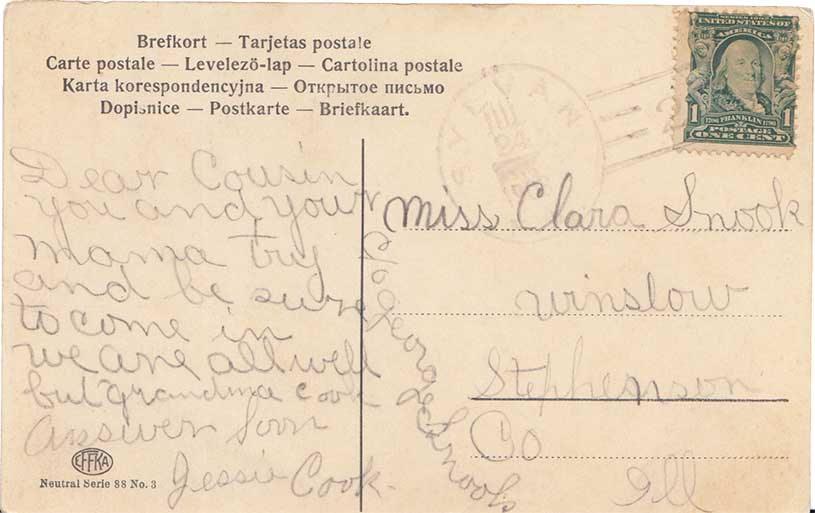 Brefkort — Tarjetas postale
Carte postale — Levelező-lap — Cartolina postale
Karta korespondencyjna — Открытое письмо
Dopisnice — Postkarte — Briefkaart.
SERIES 1902
UNITED STATES OF
AMERICA
1 1706 FRANKLIN 1790 1
POSTAGE
ONE CENT
Dear Cousin
you and your
mama try
and be sure
to come in
we are all well
but grandma Cook
Answer Soon
Jessie Cook.
Miss Clara Snook
c/o George Snook
Winslow
Stephenson
Co
Ill
EFFKA
Neutral Serie 88 No. 3